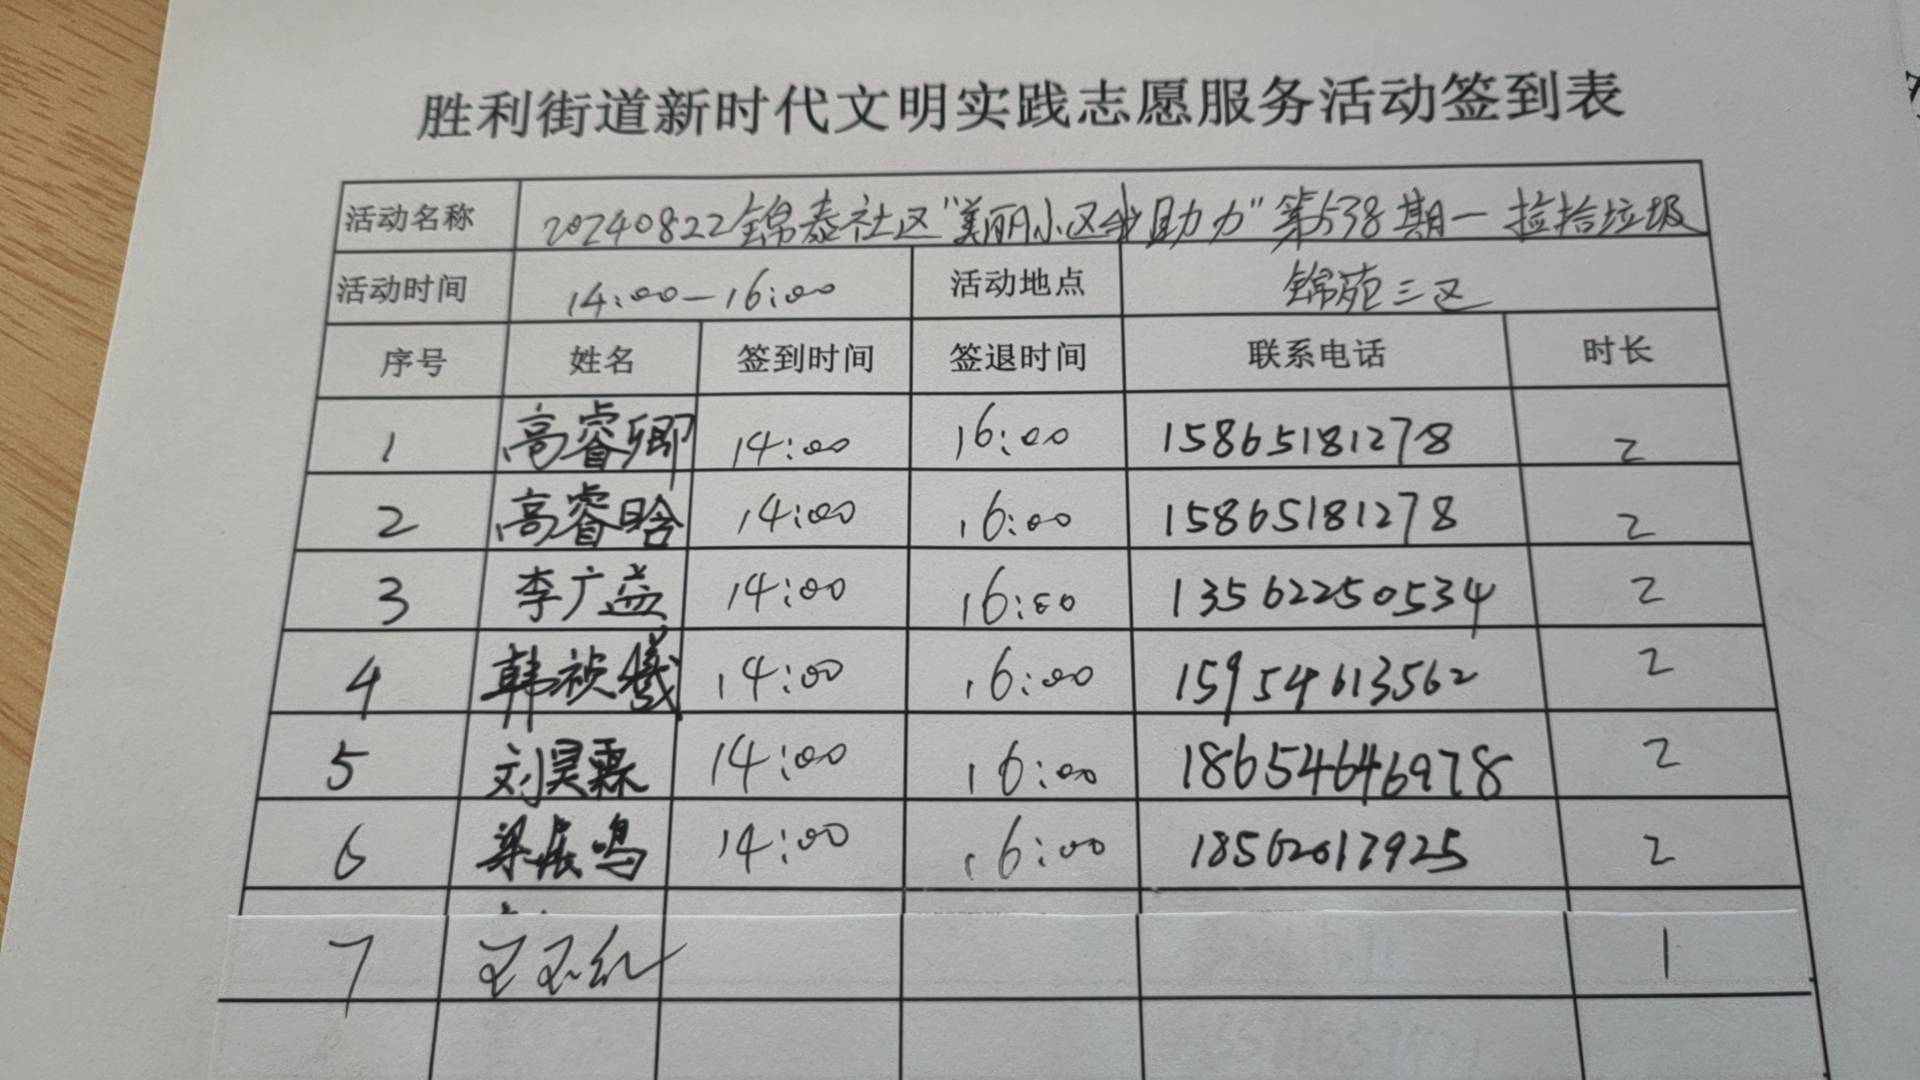 胜利街道新时代文明实践志愿服务活动签到表
活动名称 20240822锦泰社区“美丽小区我助力”第538期一捡拾垃圾
活动时间 14:00—16:00 活动地点 锦苑三区
序号 姓名 签到时间 签退时间 联系电话 时长
1 高睿卿 14:00 16:00 15865181278 2
2 高睿晗 14:00 16:00 15865181278 2
3 李广益 14:00 16:00 13562250534 2
4 韩祯羲 14:00 16:00 15954613562 2
5 刘昊霖 14:00 16:00 18654646978 2
6 梁展鸣 14:00 16:00 18562017925 2
7 王玉红 1